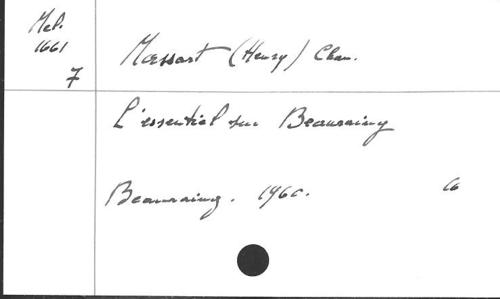 Mél.
1661
7
Massart (Henry) Chan.
L'essentiel sur Beauraing
Beauraing. 1960.